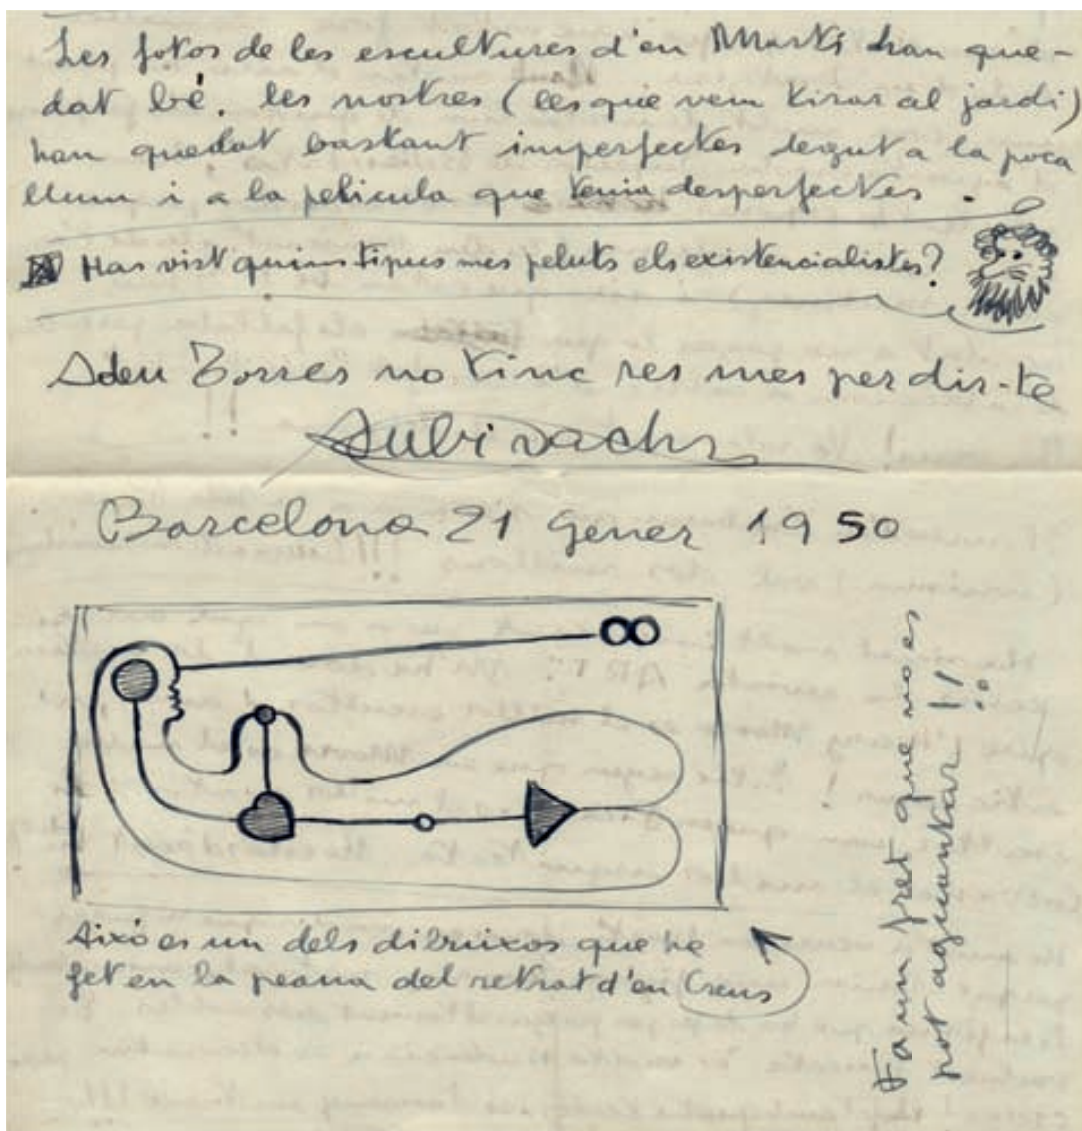 Les fotos de les escultures d'en Martí han que-
dat bé. les nostres (les que vem tirar al jardi)
han quedat bastant imperfectes degut a la poca
llum i a la pelicula que tenia desperfectes.
Has vist quins tipus mes peluts els existencialistes?
Adeu Torres no tinc res mes per dir-te
Subirachs
Barcelona 21 Gener 1950
Aixó es un dels dibruixos que he
fet en la peana del retrat d'en Creus
Fa un fret que no es
pot aguantar!!